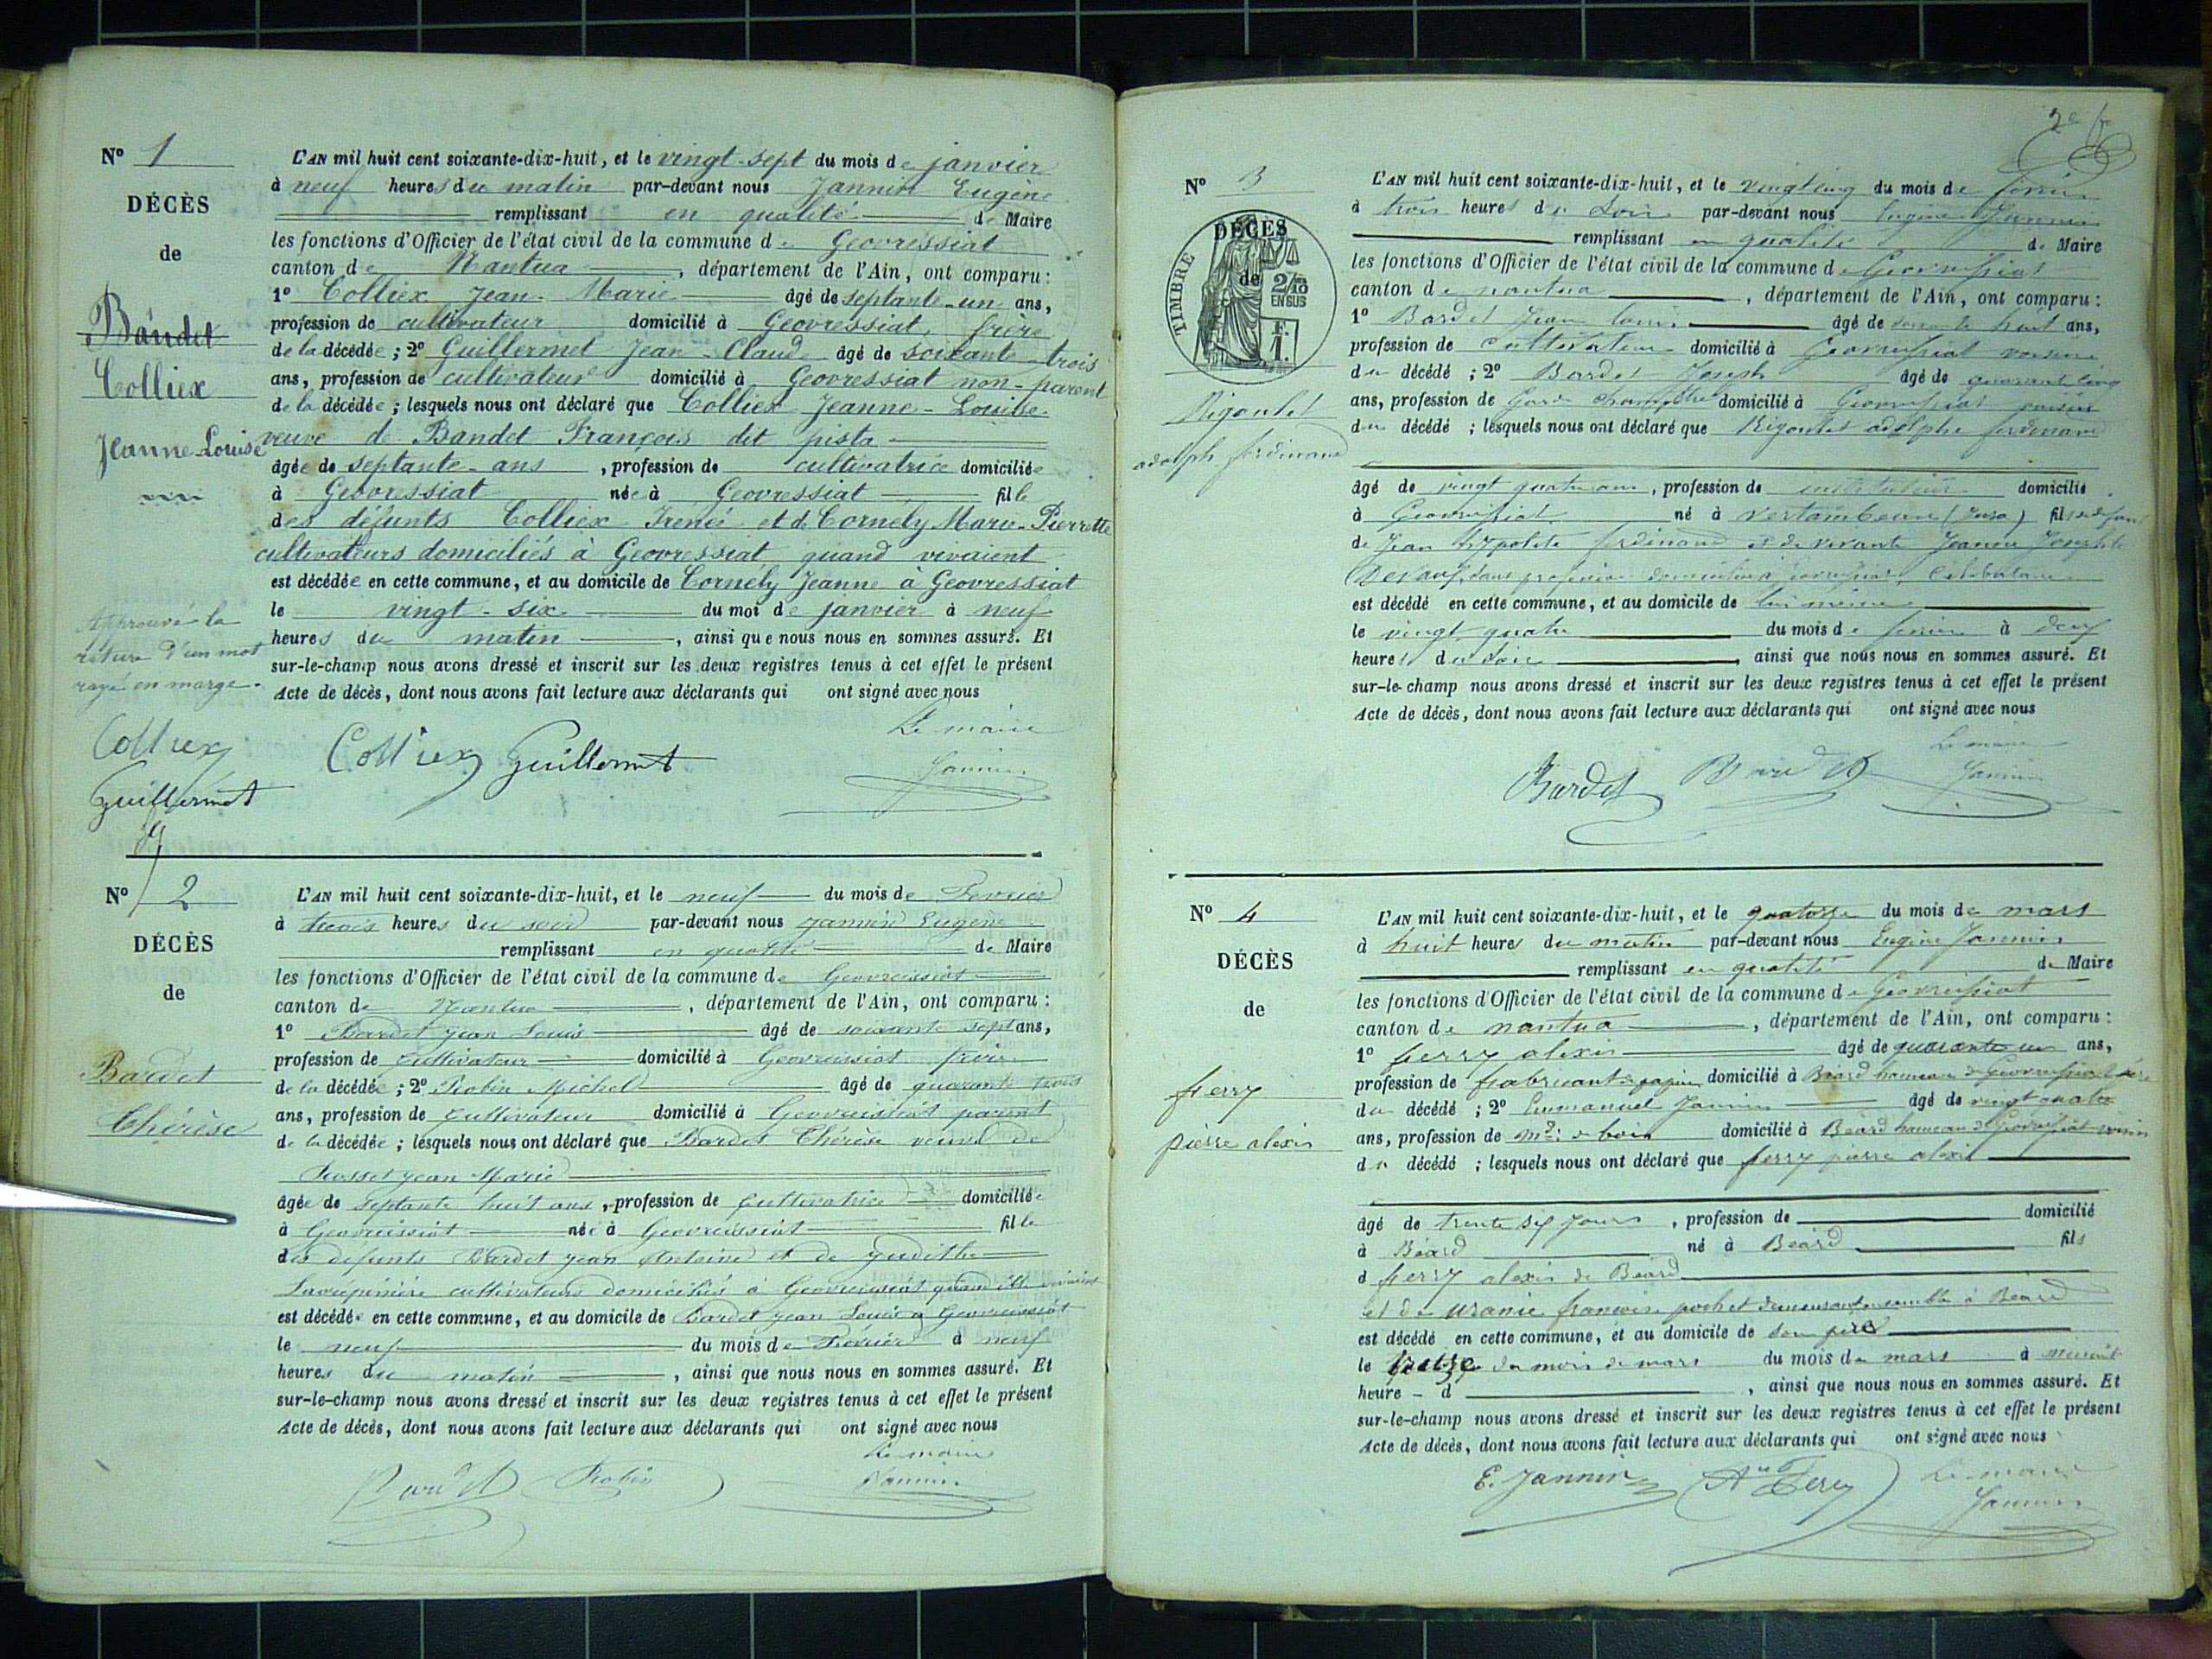 N° 1
DÉCÈS
de
Bandet
Colliex
Jeanne-Louise
L'AN mil huit cent soixante-dix-huit, et le vingt-sept du mois de janvier
à neuf heures du matin par-devant nous Jannin Eugène
remplissant en qualité de Maire
les fonctions d'Officier de l'état civil de la commune de Geovressiat
canton de Nantua, département de l'Ain, ont comparu :
1° Colliex Jean-Marie âgé de septante-un ans,
profession de cultivateur domicilié à Geovressiat, frère
de la décédée ; 2° Guillermet Jean-Claude âgé de soixante-trois
ans, profession de cultivateur domicilié à Geovressiat non-parent
de la décédée ; lesquels nous ont déclaré que Colliex Jeanne-Louise
veuve de Bandet François dit pista
âgée de septante-ans, profession de cultivatrice domiciliée
à Geovressiat née à Geovressiat fille
des défunts Colliex Irénée et de Cornély Marie-Pierrette
cultivateurs domiciliés à Geovressiat quand vivaient
est décédée en cette commune, et au domicile de Cornély Jeanne à Geovressiat
le vingt-six du moi de janvier à neuf
heures du matin, ainsi que nous nous en sommes assuré. Et
sur-le-champ nous avons dressé et inscrit sur les deux registres tenus à cet effet le présent
Acte de décès, dont nous avons fait lecture aux déclarants qui ont signé avec nous
Approuvé la
rature d'un mot
rayé en marge.
Colliex
Guillermet
Colliex Guillermet
Le maire
Jannin
N° 2
DÉCÈS
de
Bardet
Thérèse
L'AN mil huit cent soixante-dix-huit, et le neuf du mois de Fevrier
à trois heures du soir par-devant nous Jannin Eugène
remplissant en qualité de Maire
les fonctions d'Officier de l'état civil de la commune de Geovreissiat
canton de Nantua, département de l'Ain, ont comparu :
1° Bardet Jean Louis âgé de soixante sept ans,
profession de cultivateur domicilié à Geovreissiat frère
de la décédée ; 2° Robin Michel âgé de quarante trois
ans, profession de cultivateur domicilié à Geovreissiat parent
de la décédée ; lesquels nous ont déclaré que Bardet Thérèse veuve de
Jean Marie
âgée de septante huit ans, profession de cultivatrice domiciliée
à Geovreissiat née à Geovreissiat fille
des defunts Bardet Jean Antoine et de Judithe
cultivateurs domiciliés à Geovreissiat quand ils vivaient
est décédée en cette commune, et au domicile de Bardet Jean Louis a Geovreissiat
le neuf du mois de Février à neuf
heures du matin, ainsi que nous nous en sommes assuré. Et
sur-le-champ nous avons dressé et inscrit sur les deux registres tenus à cet effet le présent
Acte de décès, dont nous avons fait lecture aux déclarants qui ont signé avec nous
Le maire
Bardet Robin Jannin
N° 3
TIMBRE
DÉCÈS
de
2/10
EN SUS
F.
1.
Rigoulet
adolph ferdinand
L'AN mil huit cent soixante-dix-huit, et le vingt cinq du mois de fevrier
à trois heures du Soir par-devant nous Eugène Jannin
remplissant en qualité de Maire
les fonctions d'Officier de l'état civil de la commune de Geovreissiat
canton de nantua, département de l'Ain, ont comparu :
1° Bardet Jean Louis âgé de soixante huit ans,
profession de cultivateur domicilié à Geovreissiat voisin
du décédé ; 2° Bardet Joseph âgé de quarant cinq
ans, profession de Garde champêtre domicilié à Geovreissiat voisin
du décédé ; lesquels nous ont déclaré que Rigoulet adolphe ferdinand
âgé de vingt quatre ans, profession de instituteur domicilié
à Geovreissiat né à (Jura) fils de defunt
de Jean hypolite ferdinand et de vivante Jeanne
sans profession domiciliée à Celibataire
est décédé en cette commune, et au domicile de lui même
le vingt quatre du mois de fevrier à
heures du soir, ainsi que nous nous en sommes assuré. Et
sur-le-champ nous avons dressé et inscrit sur les deux registres tenus à cet effet le présent
Acte de décès, dont nous avons fait lecture aux déclarants qui ont signé avec nous
Le maire
Bardet Bardet Jannin
N° 4
DÉCÈS
de
ferry
pierre alexis
L'AN mil huit cent soixante-dix-huit, et le quatorze du mois de mars
à huit heures du matin par-devant nous Eugène Jannin
remplissant en qualité de Maire
les fonctions d'Officier de l'état civil de la commune de Geovreissiat
canton de nantua, département de l'Ain, ont comparu :
1° ferry alexis âgé de quarante un ans,
profession de fabricant domicilié à Béard hameau de Geovreissiat père
du décédé ; 2° Emmanuel Jannin âgé de vingt quatre
ans, profession de md de bois domicilié à Béard hameau de Geovreissiat voisin
du décédé ; lesquels nous ont déclaré que ferry pierre alexis
âgé de trente six jours, profession de domicilié
à Béard né à Béard fils
d ferry alexis de Béard
et de uranie francoise pochet demeurant ensemble à Béard
est décédé en cette commune, et au domicile de son père
le treize du mois de mars du mois de mars à minuit
heure d, ainsi que nous nous en sommes assuré. Et
sur-le-champ nous avons dressé et inscrit sur les deux registres tenus à cet effet le présent
Acte de décès, dont nous avons fait lecture aux déclarants qui ont signé avec nous
E. Jannin Ferry
Le maire
Jannin